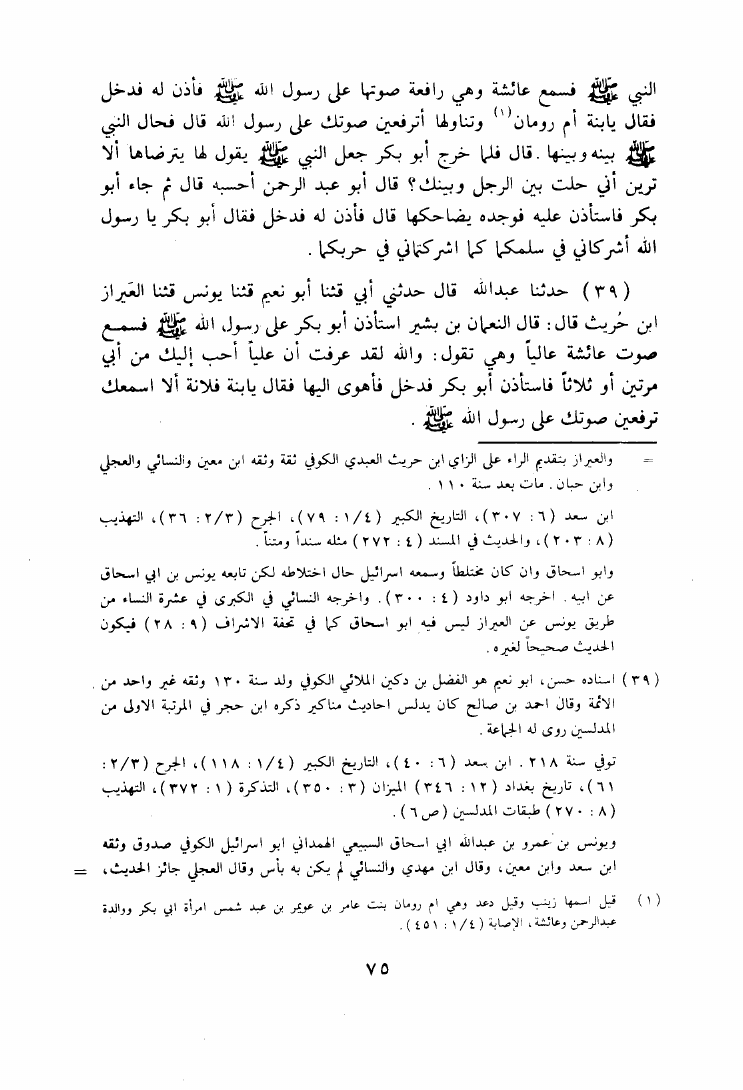 النبي ﷺ فسمع عائشة وهي رافعة صوتها على رسول الله ﷺ فأذن له فدخل
فقال يابنة أم رومان(١) وتناولها أترفعين صوتك على رسول الله قال فحال النبي
ﷺ بينه وبينها . قال فلما خرج أبو بكر جعل النبي ﷺ يقول لها يترضاها ألا
ترين أني حلت بين الرجل وبينك؟ قال أبو عبد الرحمن أحسبه قال ثم جاء أبو
بكر فاستأذن عليه فوجده يضاحكها قال فأذن له فدخل فقال أبو بكر يا رسول
الله أشركاني في سلمكما كما اشركتماني في حربكما .
(٣٩) حدثنا عبدالله قال حدثني أبي قثنا أبو نعيم قثنا يونس قثنا العَيراز
ابن حُريث قال: قال النعمان بن بشير استأذن أبو بكر على رسول الله ﷺ فسمع
صوت عائشة عالياً وهي تقول: والله لقد عرفت أن علياً أحب إليك من أبي
مرتين أو ثلاثاً فاستأذن أبو بكر فدخل فأهوى اليها فقال يابنة فلانة ألا اسمعك
ترفعين صوتك على رسول الله ﷺ .
= والعيراز بتقديم الراء على الزاي ابن حريث العبدي الكوفي ثقة وثقه ابن معين والنسائي والعجلي
وابن حبان . مات بعد سنة ١١٠ .
ابن سعد (٦ : ٣٠٧)، التاريخ الكبير (١/٤ : ٧٩)، الجرح (٢/٣ : ٣٦)، التهذيب
(٨ : ٢٠٣)، والحديث في المسند (٤ : ٢٧٢) مثله سنداً ومتناً .
وابو اسحاق وان كان مختلطاً وسمعه اسرائيل حال اختلاطه لكن تابعه يونس بن ابي اسحاق
عن ابيه . اخرجه ابو داود (٤ : ٣٠٠) . واخرجه النسائي في الكبرى في عشرة النساء من
طريق يونس عن العيراز ليس فيه ابو اسحاق كما في تحفة الاشراف (٩ : ٢٨) فيكون
الحديث صحيحاً لغيره .
(٣٩) اسناده حسن، ابو نعيم هو الفضل بن دكين الملائي الكوفي ولد سنة ١٣٠ وثقه غير واحد من
الائمة وقال احمد بن صالح كان يدلس احاديث مناكير ذكره ابن حجر في المرتبة الاولى من
المدلسين روى له الجماعة .
توفي سنة ٢١٨ . ابن سعد (٦ : ٤٠)، التاريخ الكبير (١/٤ : ١١٨)، الجرح (٢/٣ :
٦١)، تاريخ بغداد (١٢ : ٣٤٦) الميزان (٣ : ٣٥٠)، التذكرة (١ : ٣٧٢)، التهذيب
(٨ : ٢٧٠) طبقات المدلسين (ص ٦) .
ويونس بن عمرو بن عبدالله ابي اسحاق السبيعي الهمداني ابو اسرائيل الكوفي صدوق وثقه
ابن سعد وابن معين، وقال ابن مهدي والنسائي لم يكن به بأس وقال العجلي جائز الحديث، =
(١) قيل اسمها زينب وقيل دعد وهي ام رومان بنت عامر بن عويمر بن عبد شمس امرأة ابي بكر ووالدة
عبدالرحمن وعائشة، الإصابة (١/٤ : ٤٥١) .
٧٥